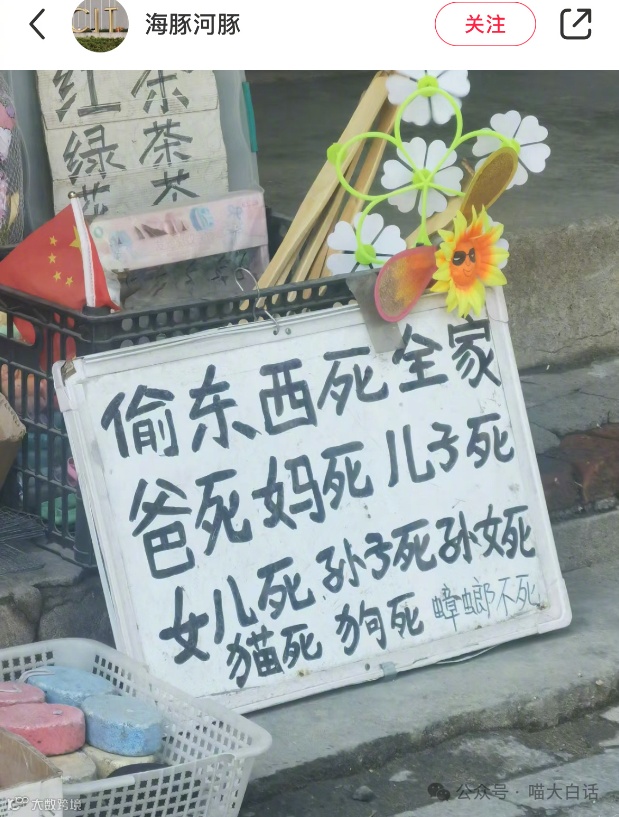 海豚河豚
关注
红茶
绿茶
偷东西死全家
爸死妈死儿子死
女儿死孙子死孙女死
猫死 狗死 蟑螂不死
公众号·喵大白话
大数跨境